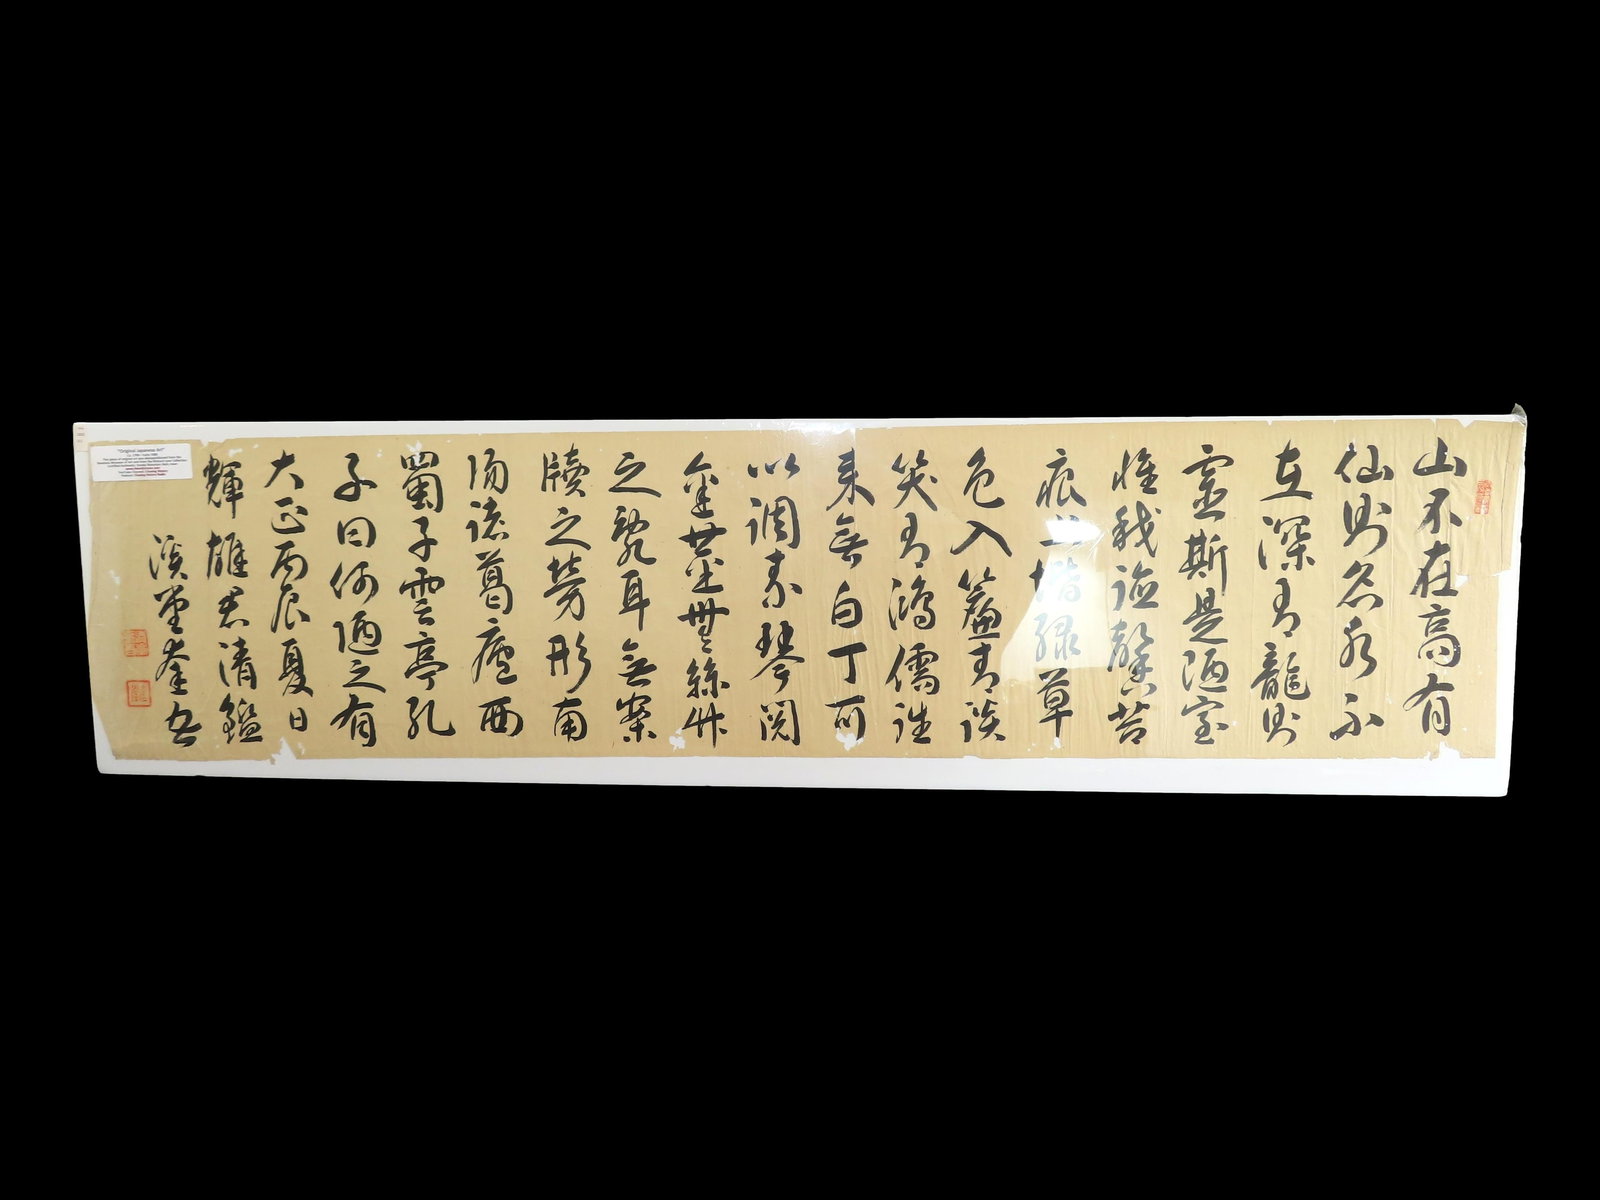 山不在高有
仙則名水不
在深有龍則
靈斯是陋室
惟我德馨苔
痕上階緑草
色入簾青談
笑有鴻儒往
来無白丁可
以調素琴閲
金無絲竹
之亂耳無案
牘之勞形南
陽諸葛廬西
蜀子雲亭孔
子曰何陋之有
大正丙辰夏日
輝雄君清鑑
溪堂
"Original Japanese Art"